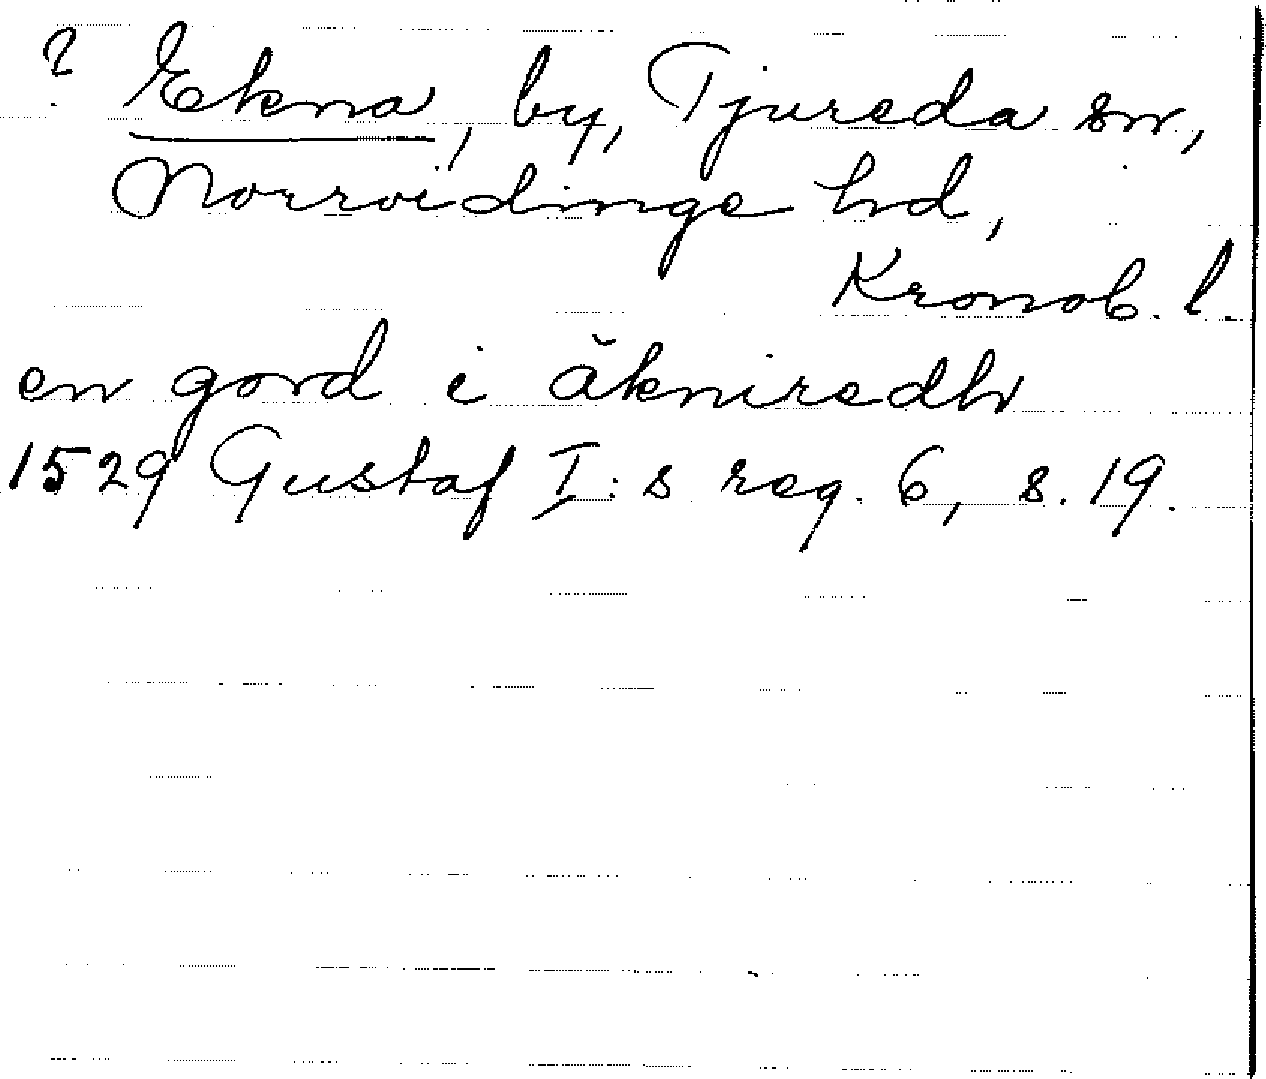 ? Ekna, by, Tjureda sn,
Norrvidinge hd,
Kronob. l.
en gord i äkniredh
1529 Gustaf I:s reg. 6, s. 19.